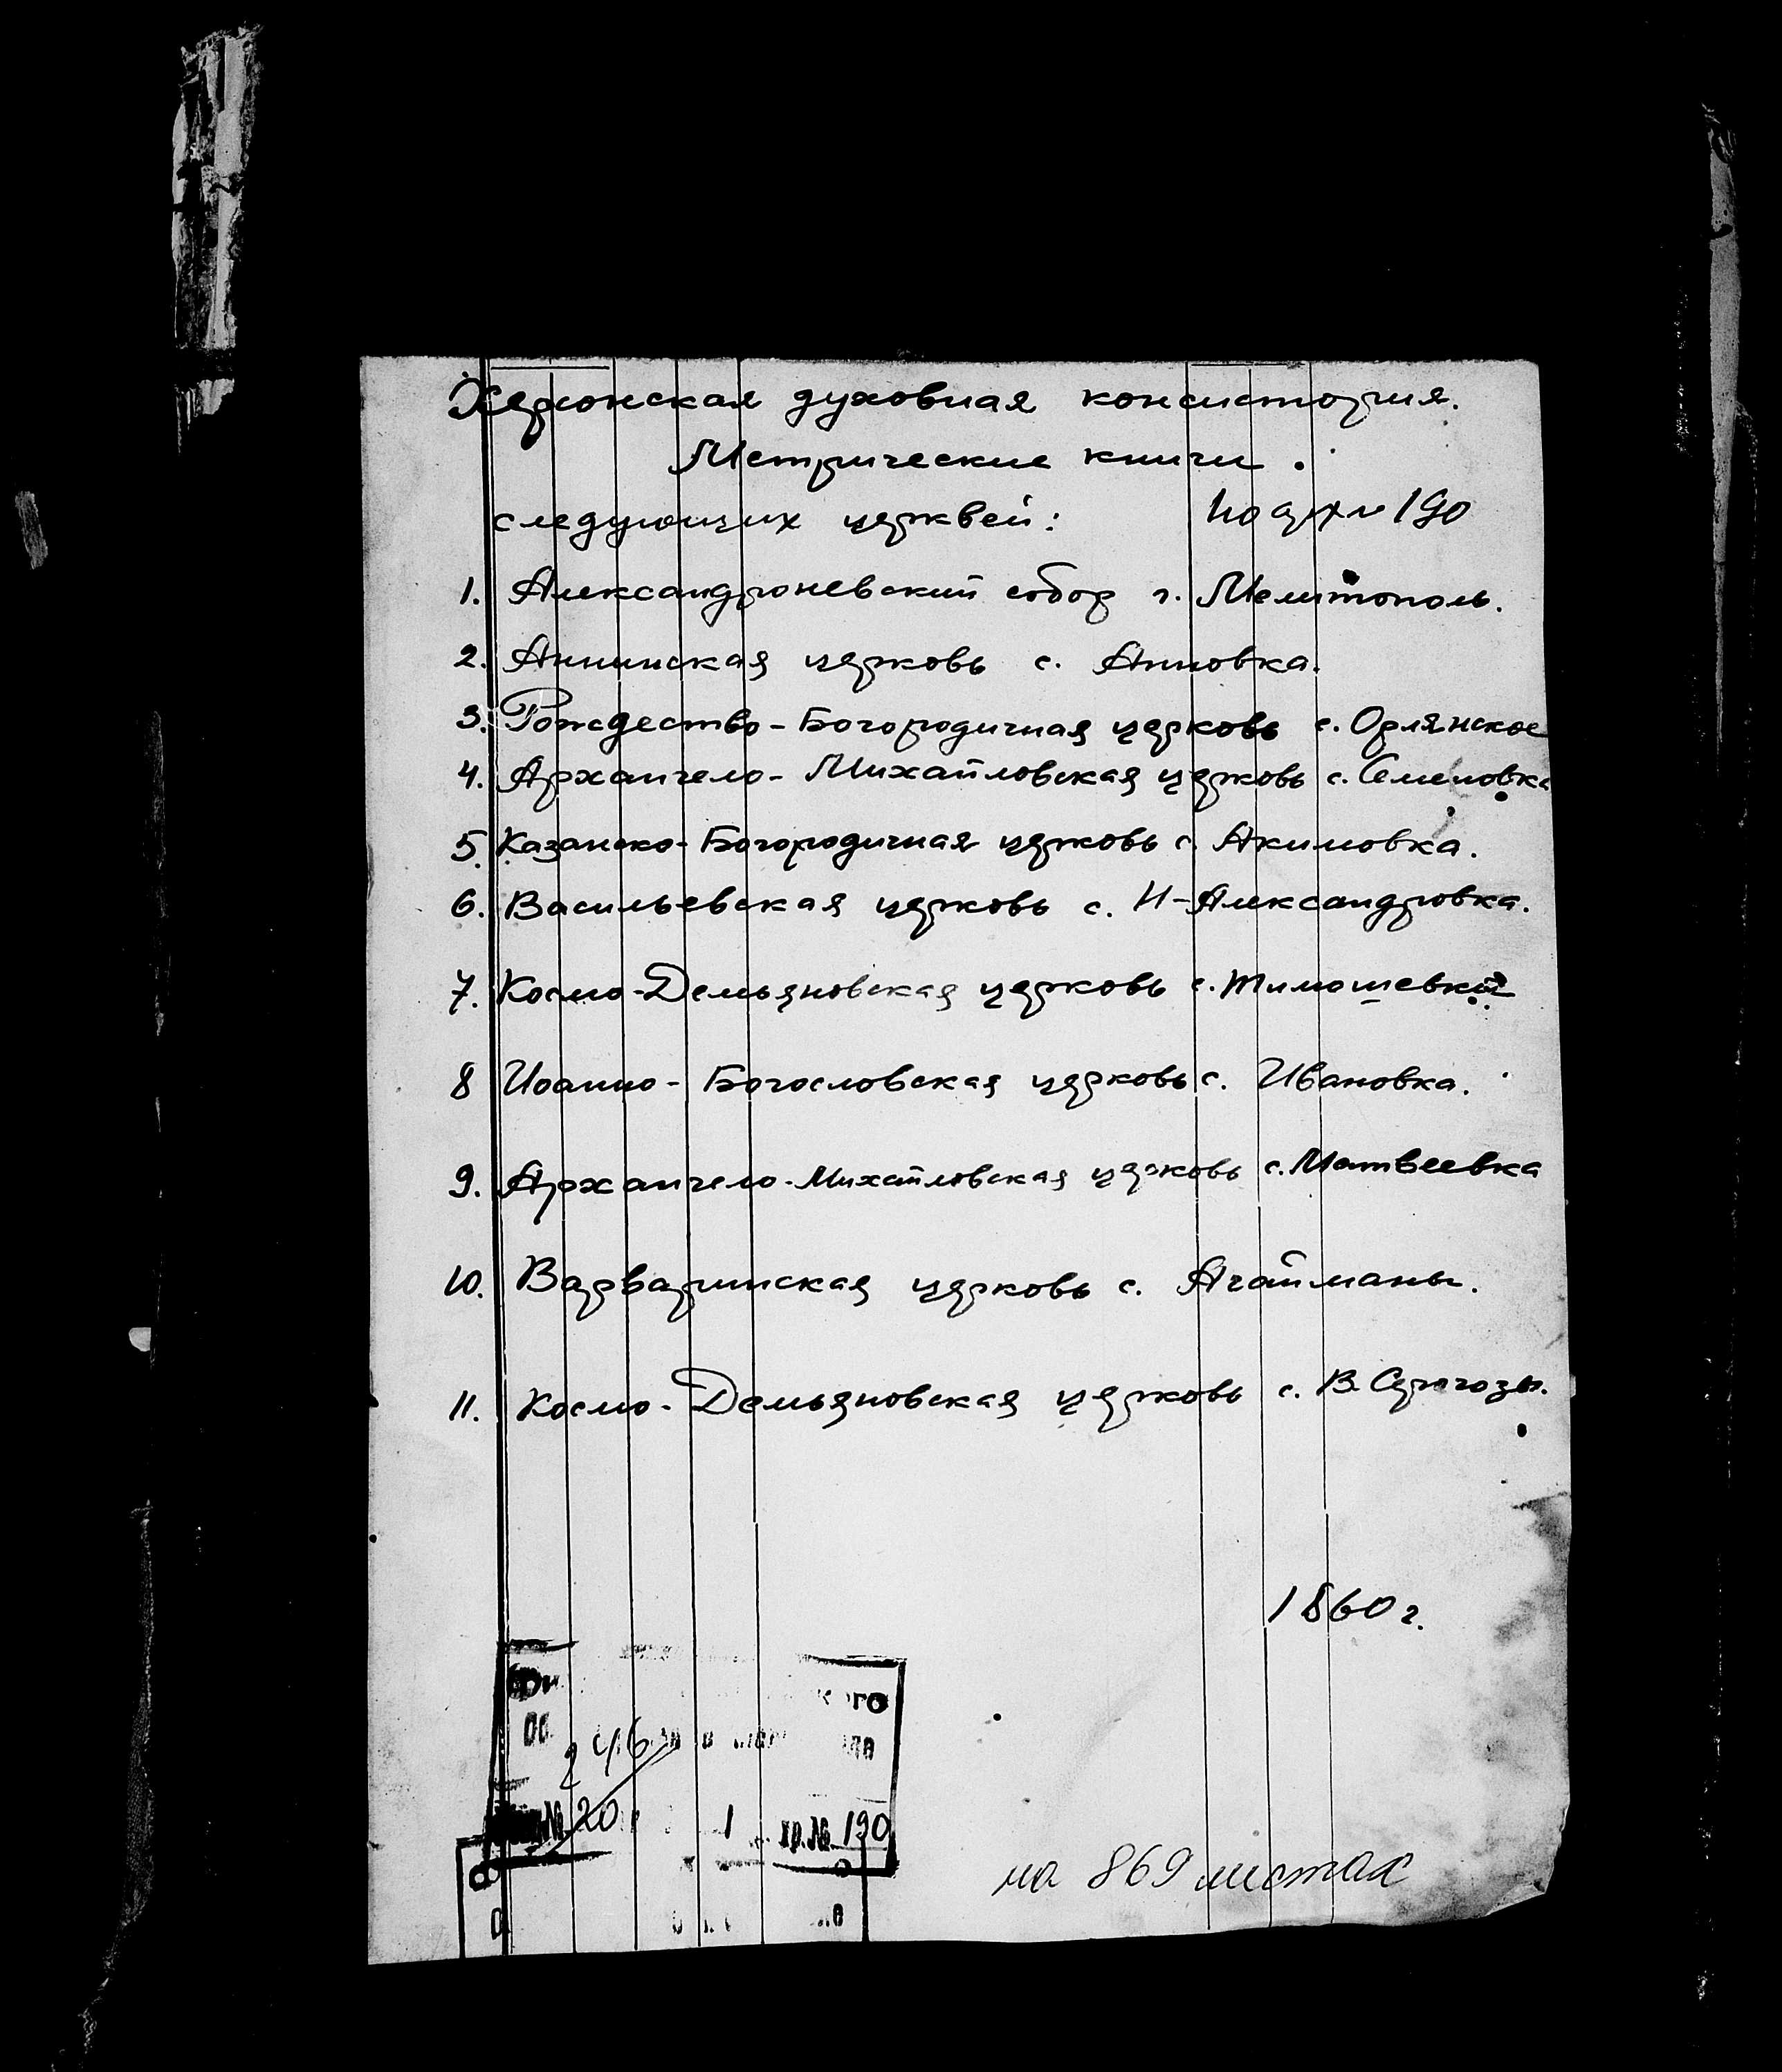 Херсонская духовная консистория.
Метрические книги.
следующих церквей:
190
1. Александроневский собор г. Мелитополь.
2. Аннинская церковь с. Анновка.
3. Рождество-Богородичная церковь с. Орлянское
4. Архангело-Михайловская церковь с. Семеновка
5. Казанско-Богородичная церковь с. Акимовка.
6. Васильевская церковь с. Н-Александровка.
7. Космо-Демьяновская церковь с. Тимошевка
8 Иоанно-Богословская церковь с. Ивановка.
9. Архангело-Михайловская церковь с. Матвеевка
10. Варваринская церковь с. Агайманы.
11. Космо-Демьяновская церковь с. В. Серогозы.
1860 г.
№ 20 1 хр. № 190
на 869 листах